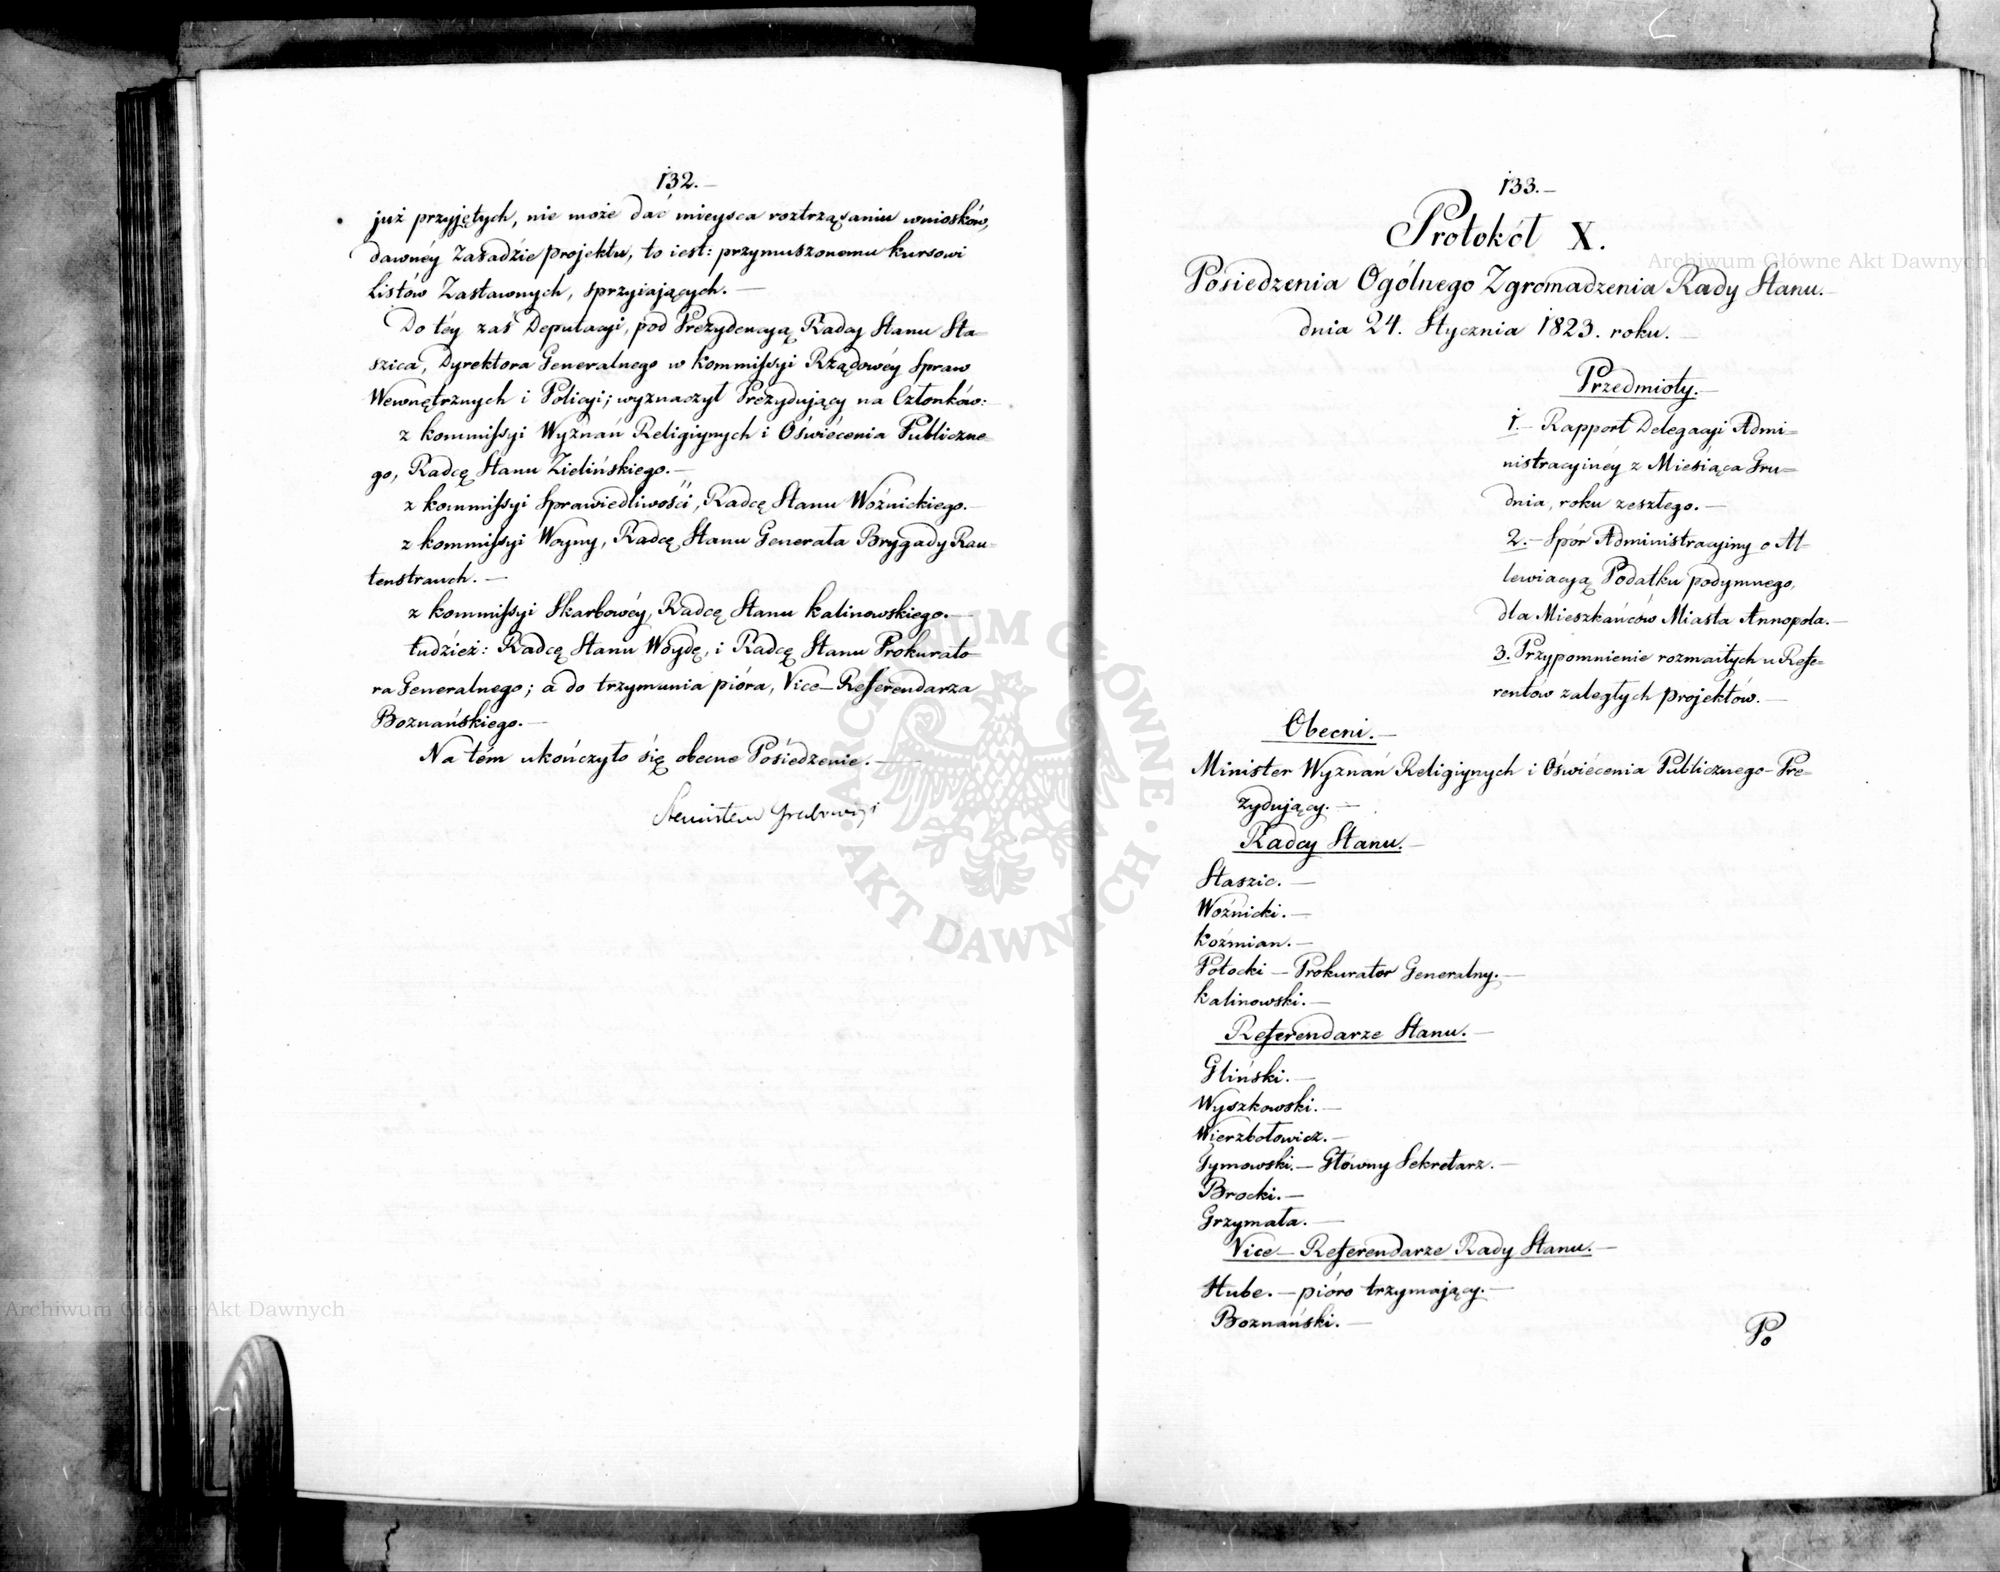 132.
już przyjętych, nie może dać mieysca roztrząsaniu wniosków,
dawnéy Zasadzie projektu, to iest: przymuszonemu kursowi
Listów Zastawnych, sprzyiających.—
Do téy zaś Deputacyi, pod Prezydencyą Radcy Stanu Sta=
szica, Dyrektora Generalnego w Kommissyi Rządowéy Spraw
Wewnętrznych i Policyi; wyznaczył Prezydujący na Członków:
z Kommissyi Wyznań Religiynych i Oświécenia Publiczne=
go, Radcę Stanu Zielińskiego.—
z Kommissyi Sprawiedliwości, Radcę Stanu Woźnickiego.—
z Kommissyi Woyny, Radcę Stanu Generała Brygady Rau=
tenstrauch.—
z Kommissyi Skarbowéy, Radcę Stanu Kalinowskiego.—
tudzież: Radcę Stanu Woydę, i Radcę Stanu Prokurato=
ra Generalnego; a do trzymania pióra, Vice-Referendarza
Boznańskiego.—
Na tém ukończyło się obecne Posiedzenie.—
Stanisław Grabowski
133.—
Protokół X.
Posiedzenia Ogólnego Zgromadzenia Rady Stanu.—
dnia 24. Stycznia 1823. roku.—
Przedmioty.—
1.— Rapport Delegacyi Admi=
nistracyinéy z Miesiąca Gru=
dnia, roku zeszłego.—
2.— Spór Administracyiny o Al=
lewiacyą Podatku podymnego,
dla Mieszkańców Miasta Annopola.—
3. Przypomnienie rozmaitych u Refe=
rentów zaległych projektów.—
Obecni.—
Minister Wyznań Religiynych i Oświécenia Publicznego- Pre=
zydujący.—
Radcy Stanu.—
Staszic.—
Woźnicki.—
Koźmian.—
Potocki — Prokurator Generalny.—
Kalinowski.—
Referendarze Stanu.—
Gliński.—
Wyszkowski.—
Wierzbołowicz.—
Tymowski.— Główny Sekretarz.—
Brocki.—
Grzymała.—
Vice— Referendarze Rady Stanu.—
Hube.— pióro trzymający.—
Boznański.—
Po
Archiwum Główne Akt Dawnych
Archiwum Główne Akt Dawnych
ARCHIWUM GŁÓWNE AKT DAWNYCH